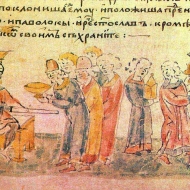 поклонишаⷭ҇ емоу . и положиша пре н
о . и паволокы . и реⷱ҇ стославъ . кромѣ
своимъ съхраните :—